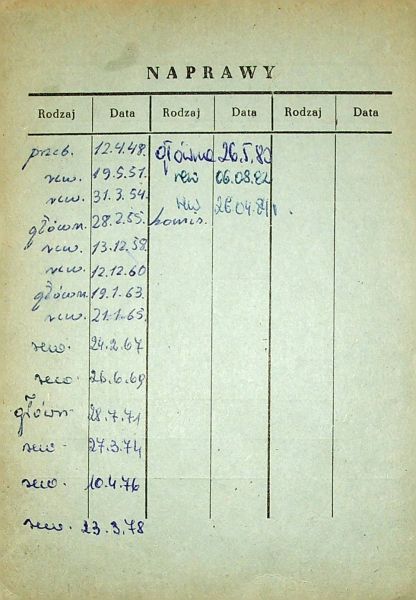 NAPRAWY
Rodzaj Data Rodzaj Data Rodzaj Data
przeb. 12.4.48. główna 26.5.80
rew. 19.5.51. rew 06.08.82
rew. 31.3.54. rew 26.04.84r.
główn. 28.2.55. komis.
rew. 13.12.58.
rew. 12.12.60
główn. 19.1.63.
rew. 21.1.65.
rew. 24.2.67
rew. 26.6.69
główn 28.7.71
rew. 27.3.74
rew. 10.4.76
rew. 23.3.78